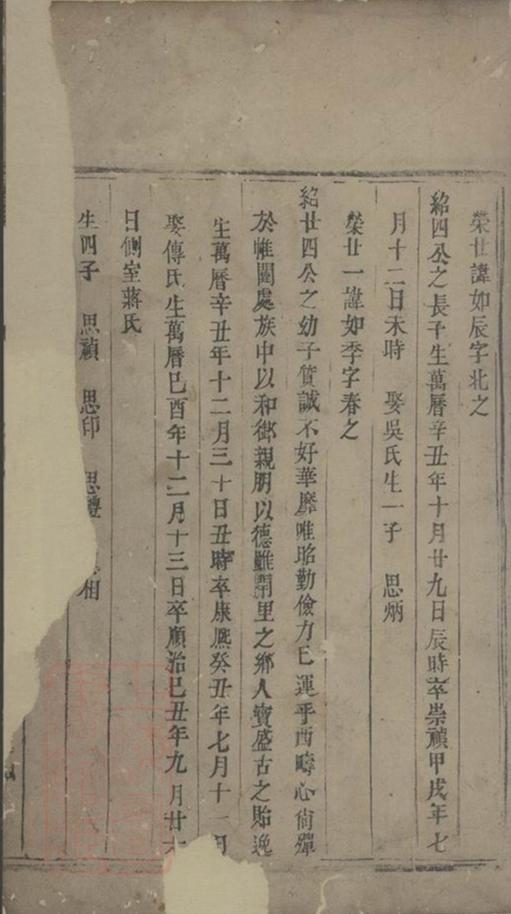 榮廿諱如辰字北之
紹四公之長子生萬曆辛丑年十月廿九日辰時卒崇禎甲戌年七
月十二日未時 娶吳氏生一子 思炳
榮廿一諱如季字春之
紹廿四公之幼子質誠不好華靡唯昭勤儉力已運乎西疇心尙殫
於帷闈處族中以和御親朋以德雖閈里之鄉人實盛古之貽逸
生萬曆辛丑年十二月三十日丑時卒康熙癸丑年七月十一日
娶傅氏生萬曆己酉年十二月十三日卒順治己丑年九月廿七
日側室蔣氏
生四子 思禎 思印 思 相